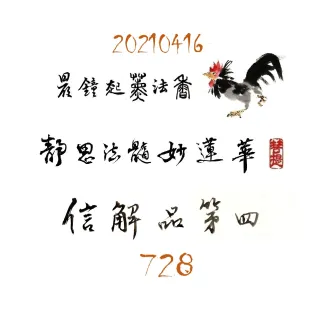 20210416
晨鐘起薰法香
靜思法髓妙蓮華
信解品第四
728